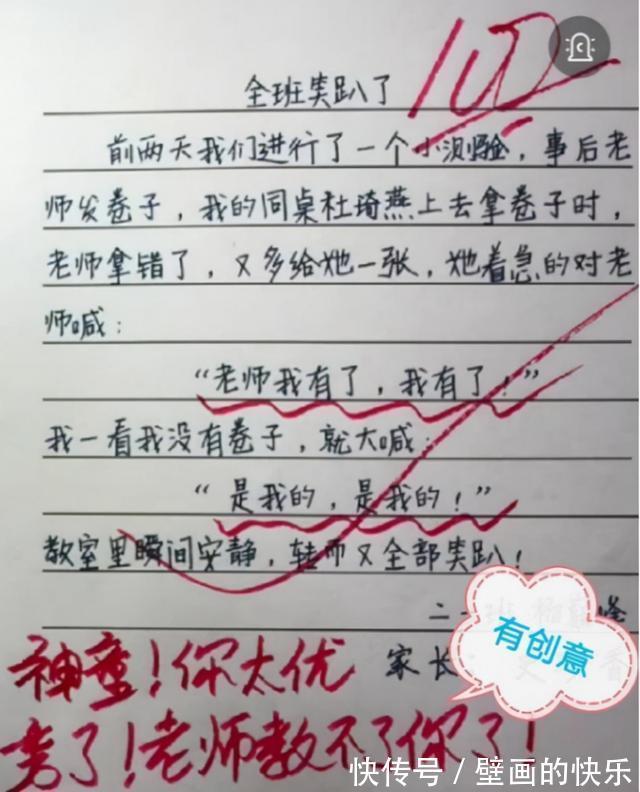 100
全班笑趴了
前两天我们进行了一个小测验，事后老
师发卷子，我的同桌杜琦燕上去拿卷子时，
老师拿错了，又多给她一张，她着急的对老
师喊：
“老师我有了，我有了！”
我一看我没有卷子，就大喊：
“是我的，是我的！”
教室里瞬间安静，转而又全部笑趴！
二一班
家长
有创意
神童！你太优
秀了！老师教不了你了！
快传号／壁画的快乐